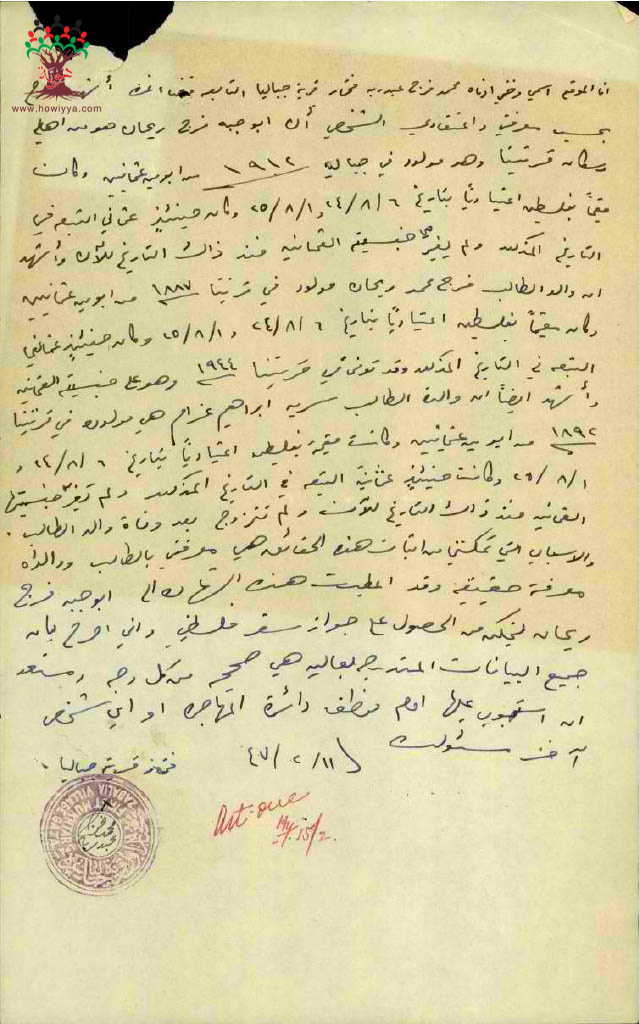 www.howiyya.com
انا الموقع اسمي وختمي ادناه محمد فرج عبدربه مختار قرية جباليا التابعه قضاء غزة أشهد
بحسب معرفتي واعتقادي الشخصي أن ابو جبه فرج ريحان هو من اهالي
وسكان قريتنا وهو مولود في جباليا ١٩١٢ من ابوين عثمانيين وكان
مقيماً بفلسطين اعتيادياً بتاريخ ٦/٨/٢٤ و ١/٨/٢٥ وكان حينئذٍ عثماني التبعه في
التاريخ المذكور ولم يغير جنسيته العثمانيه منذ ذاك التاريخ للآن وأشهد
ان والد الطالب فرج محمد ريحان مولود في قريتنا ١٨٨٧ من ابوين عثمانيين
وكان مقيماً بفلسطين اعتيادياً بتاريخ ٦/٨/٢٤ و ١/٨/٢٥ وكان حينئذٍ عثماني
التبعه في التاريخ المذكور وقد توفى في قريتنا ١٩٤٤ وهو على جنسيته العثمانيه
وأشهد ايضاً ان والدة الطالب سريه ابراهيم عزام هي مولوده في قريتنا
١٨٩٢ من ابوين عثمانيين وكانت مقيمة بفلسطين اعتيادياً بتاريخ ٦/٨/٢٤ و
١/٨/٢٥ وكانت حينئذٍ عثمانية التبعه في التاريخ المذكور ولم تغير جنسيتها
العثمانيه منذ ذاك التاريخ للآن ولم تتزوج بعد وفاة والد الطالب .
والاسباب التي تمكنني من اثبات هذه الحقائق هي معرفتي بالطالب ووالداه
معرفة حقيقيه وقد اعطيت هذه الشهاده الى ابو جبه فرج
ريحان ليتمكن من الحصول على جواز سفر فلسطيني واني اصرح بان
جميع البيانات المندرجه بعاليه هي صحيحه من كل وجه ومستعد
ان استجوب عليها امام موظف دائرة المهاجره او اي شخص
آخر مسئول ١١/٢/٤٧
مختار قرية جباليا
محمد فرج
عبد ربه
15/2.